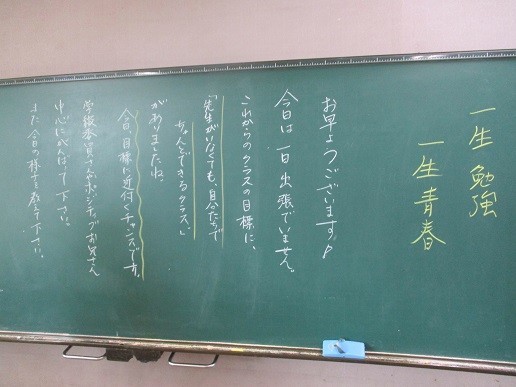 一生 勉強
一生青春
お早ようございます♪
今日は一日出張でいません。
これからのクラスの目標に、
「先生がいなくても、自分たちで
ちゃんとできるクラス」
がありましたね。
今日、目標に近付くチャンスです。
学級委員さん ポジティブお兄さん
中心にがんばって下さい。
また今日の様子を教えて下さい。